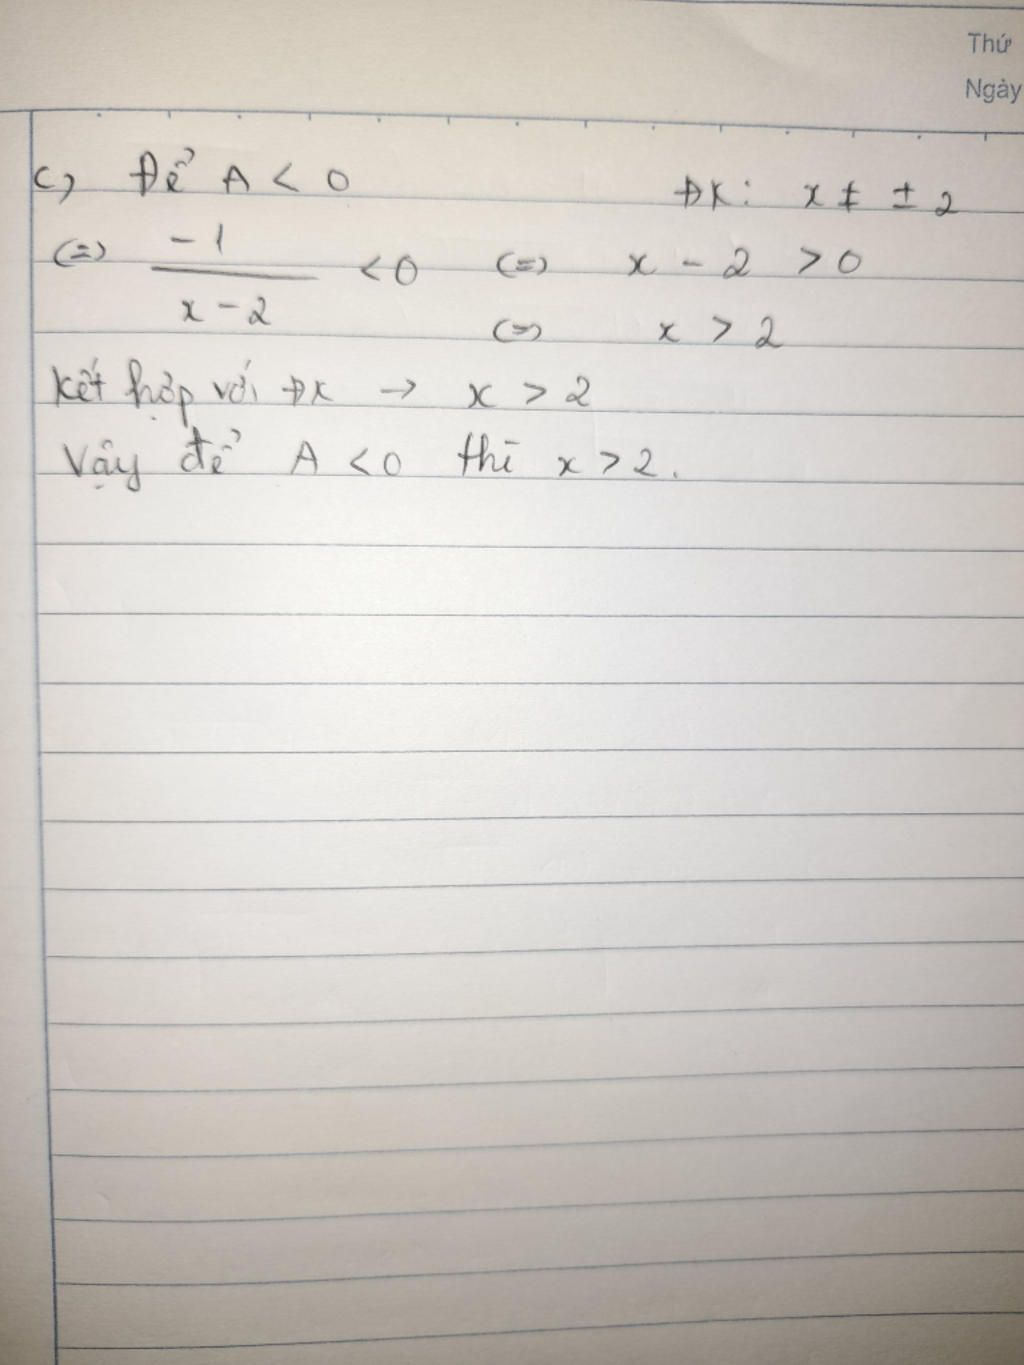 Thứ
Ngày
c) Để A < 0 ĐK: x ≠ ± 2
(=) -1/(x-2) < 0 (=) x - 2 > 0
(=) x > 2
Kết hợp với ĐK → x > 2
Vậy để A < 0 thì x > 2.